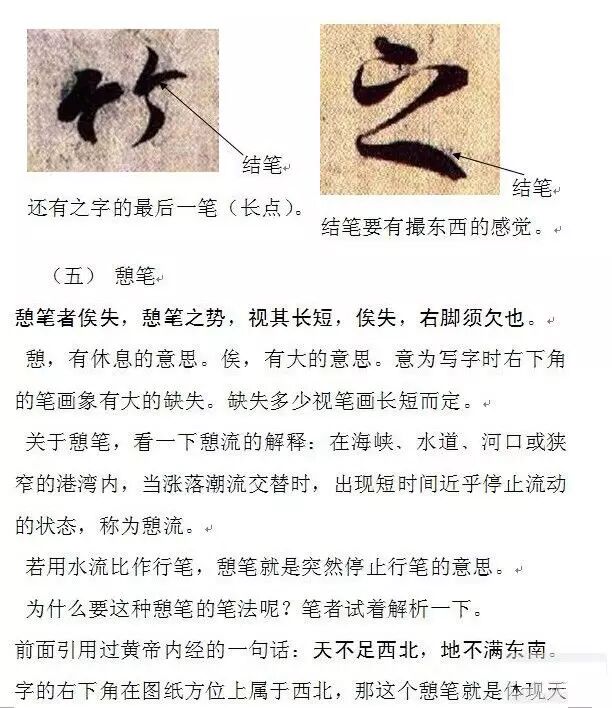 竹
之
结笔
结笔
还有之字的最后一笔（长点）。
结笔要有撮东西的感觉。
（五） 憩笔
憩笔者俟失，憩笔之势，视其长短，俟失，右脚须欠也。
憩，有休息的意思。俟，有大的意思。意为写字时右下角
的笔画象有大的缺失。缺失多少视笔画长短而定。
关于憩笔，看一下憩流的解释：在海峡、水道、河口或狭
窄的港湾内，当涨落潮流交替时，出现短时间近乎停止流动
的状态，称为憩流。
若用水流比作行笔，憩笔就是突然停止行笔的意思。
为什么要这种憩笔的笔法呢？笔者试着解析一下。
前面引用过黄帝内经的一句话：天不足西北，地不满东南。
字的右下角在图纸方位上属于西北，那这个憩笔就是体现天